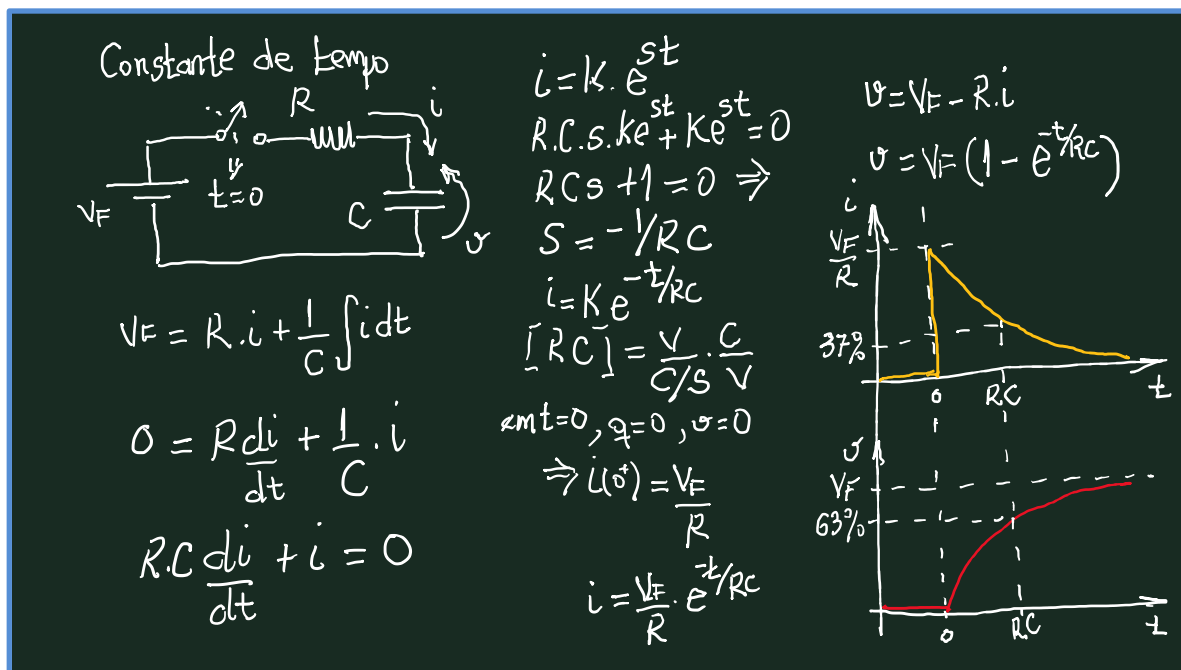 Constante de tempo
R
i
t=0
VF
C
v
VF = R.i + 1/C ∫ i dt
0 = R di/dt + 1/C . i
R.C di/dt + i = 0
i = K. e^st
R.C.s.Ke^st + Ke^st = 0
RCs + 1 = 0 ⇒
S = -1/RC
i = K e^-t/RC
[RC] = V/C/S . C/V
em t=0, q=0, v=0
⇒ i(0⁺) = VF/R
i = VF/R . e^-t/RC
v = VF - R.i
v = VF (1 - e^-t/RC)
i
VF/R
37%
0
RC
t
v
VF
63%
0
RC
t